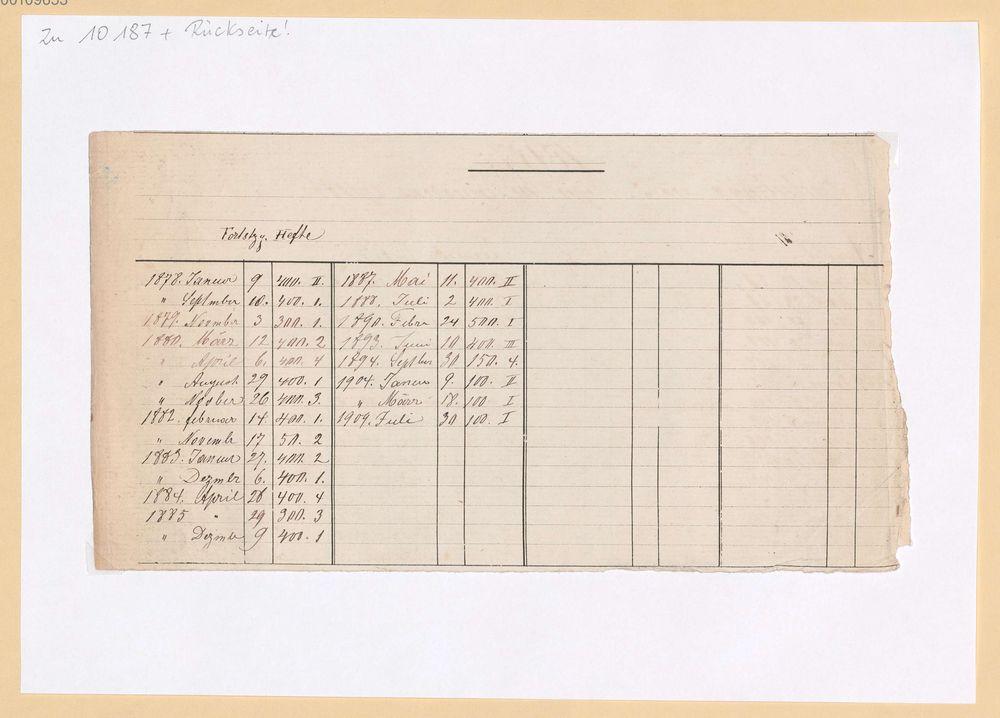 Zu 10 187 + Rückseite!
Fortstzg. Hefte
1878. Januar 9 400. II.
" Septmber 10. 400. 1.
1879. November 3 300. 1.
1880. März 12 400. 2
" April 6. 400. 4
" August 29 400. 1
" Oktober 26 400. 3.
1882. februar 14. 400. 1.
" Novembr 17 50. 2
1883. Januar 27. 400. 2
" Dezmbr 6. 400. 1.
1884. April 28 400. 4
1885 " 29 300. 3
" Dezmbr 9 400. 1
1887. Mai 11. 400. II
1888. Juli 2 400. I
1890. Febru 24 500. I
1893. Juni 10 400. III
1894. Septber 30 150. 4.
1904. Januar 9. 100. II
" März 18. 100 I
1909. Juli 30 100. I